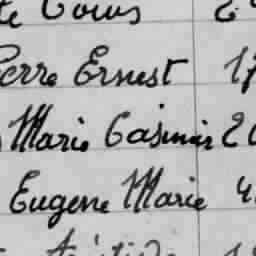 te Louis 2
Pierre Ernest 17
Marie Casimir 20
Eugene Marie 4